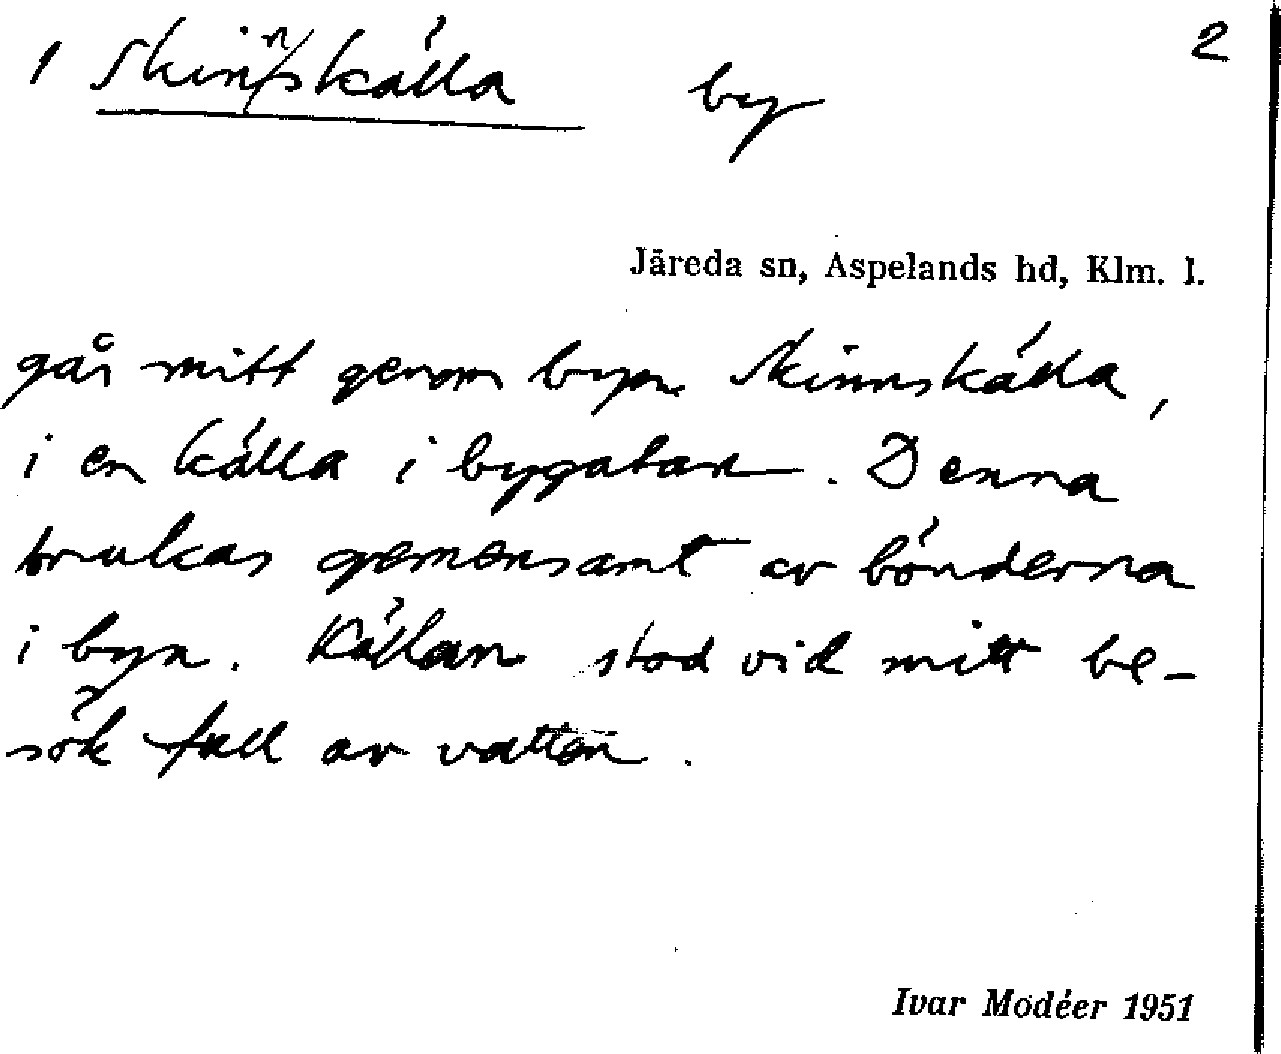 1 Skinnskälla by 2
Järeda sn, Aspelands hd, Klm. l.
går mitt genom byn Skinnskälla,
i en källa i bygatan. Denna
brukas gemensamt av bönderna
i byn. Källan stod vid mitt be-
sök full av vatten.
Ivar Modéer 1951